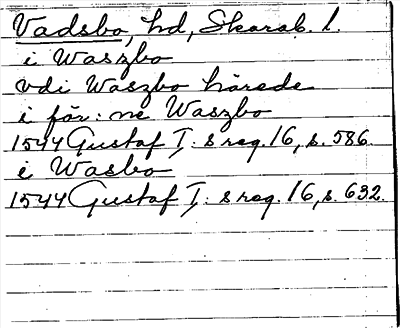 Vadsbo, hd, Skarab. l.
i Waszbo
vdi Waszbo härede
i för: ne Waszbo
1544 Gustaf I: s reg. 16, s. 586.
i Wasbo
1544 Gustaf I: s reg. 16, s. 632.